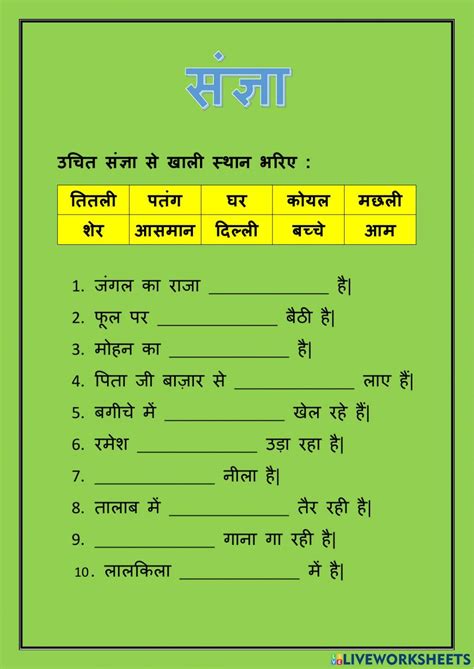 संज्ञा
उचित संज्ञा से खाली स्थान भरिए :
तितली पतंग घर कोयल मछली
शेर आसमान दिल्ली बच्चे आम
1. जंगल का राजा ____________ है|
2. फूल पर ____________ बैठी है|
3. मोहन का ____________ है|
4. पिता जी बाज़ार से ____________ लाए हैं|
5. बगीचे में ____________ खेल रहे हैं|
6. रमेश ____________ उड़ा रहा है|
7. ____________ नीला है|
8. तालाब में ____________ तैर रही है|
9. ____________ गाना गा रही है|
10. लालकिला ____________ में है|
LIVEWORKSHEETS